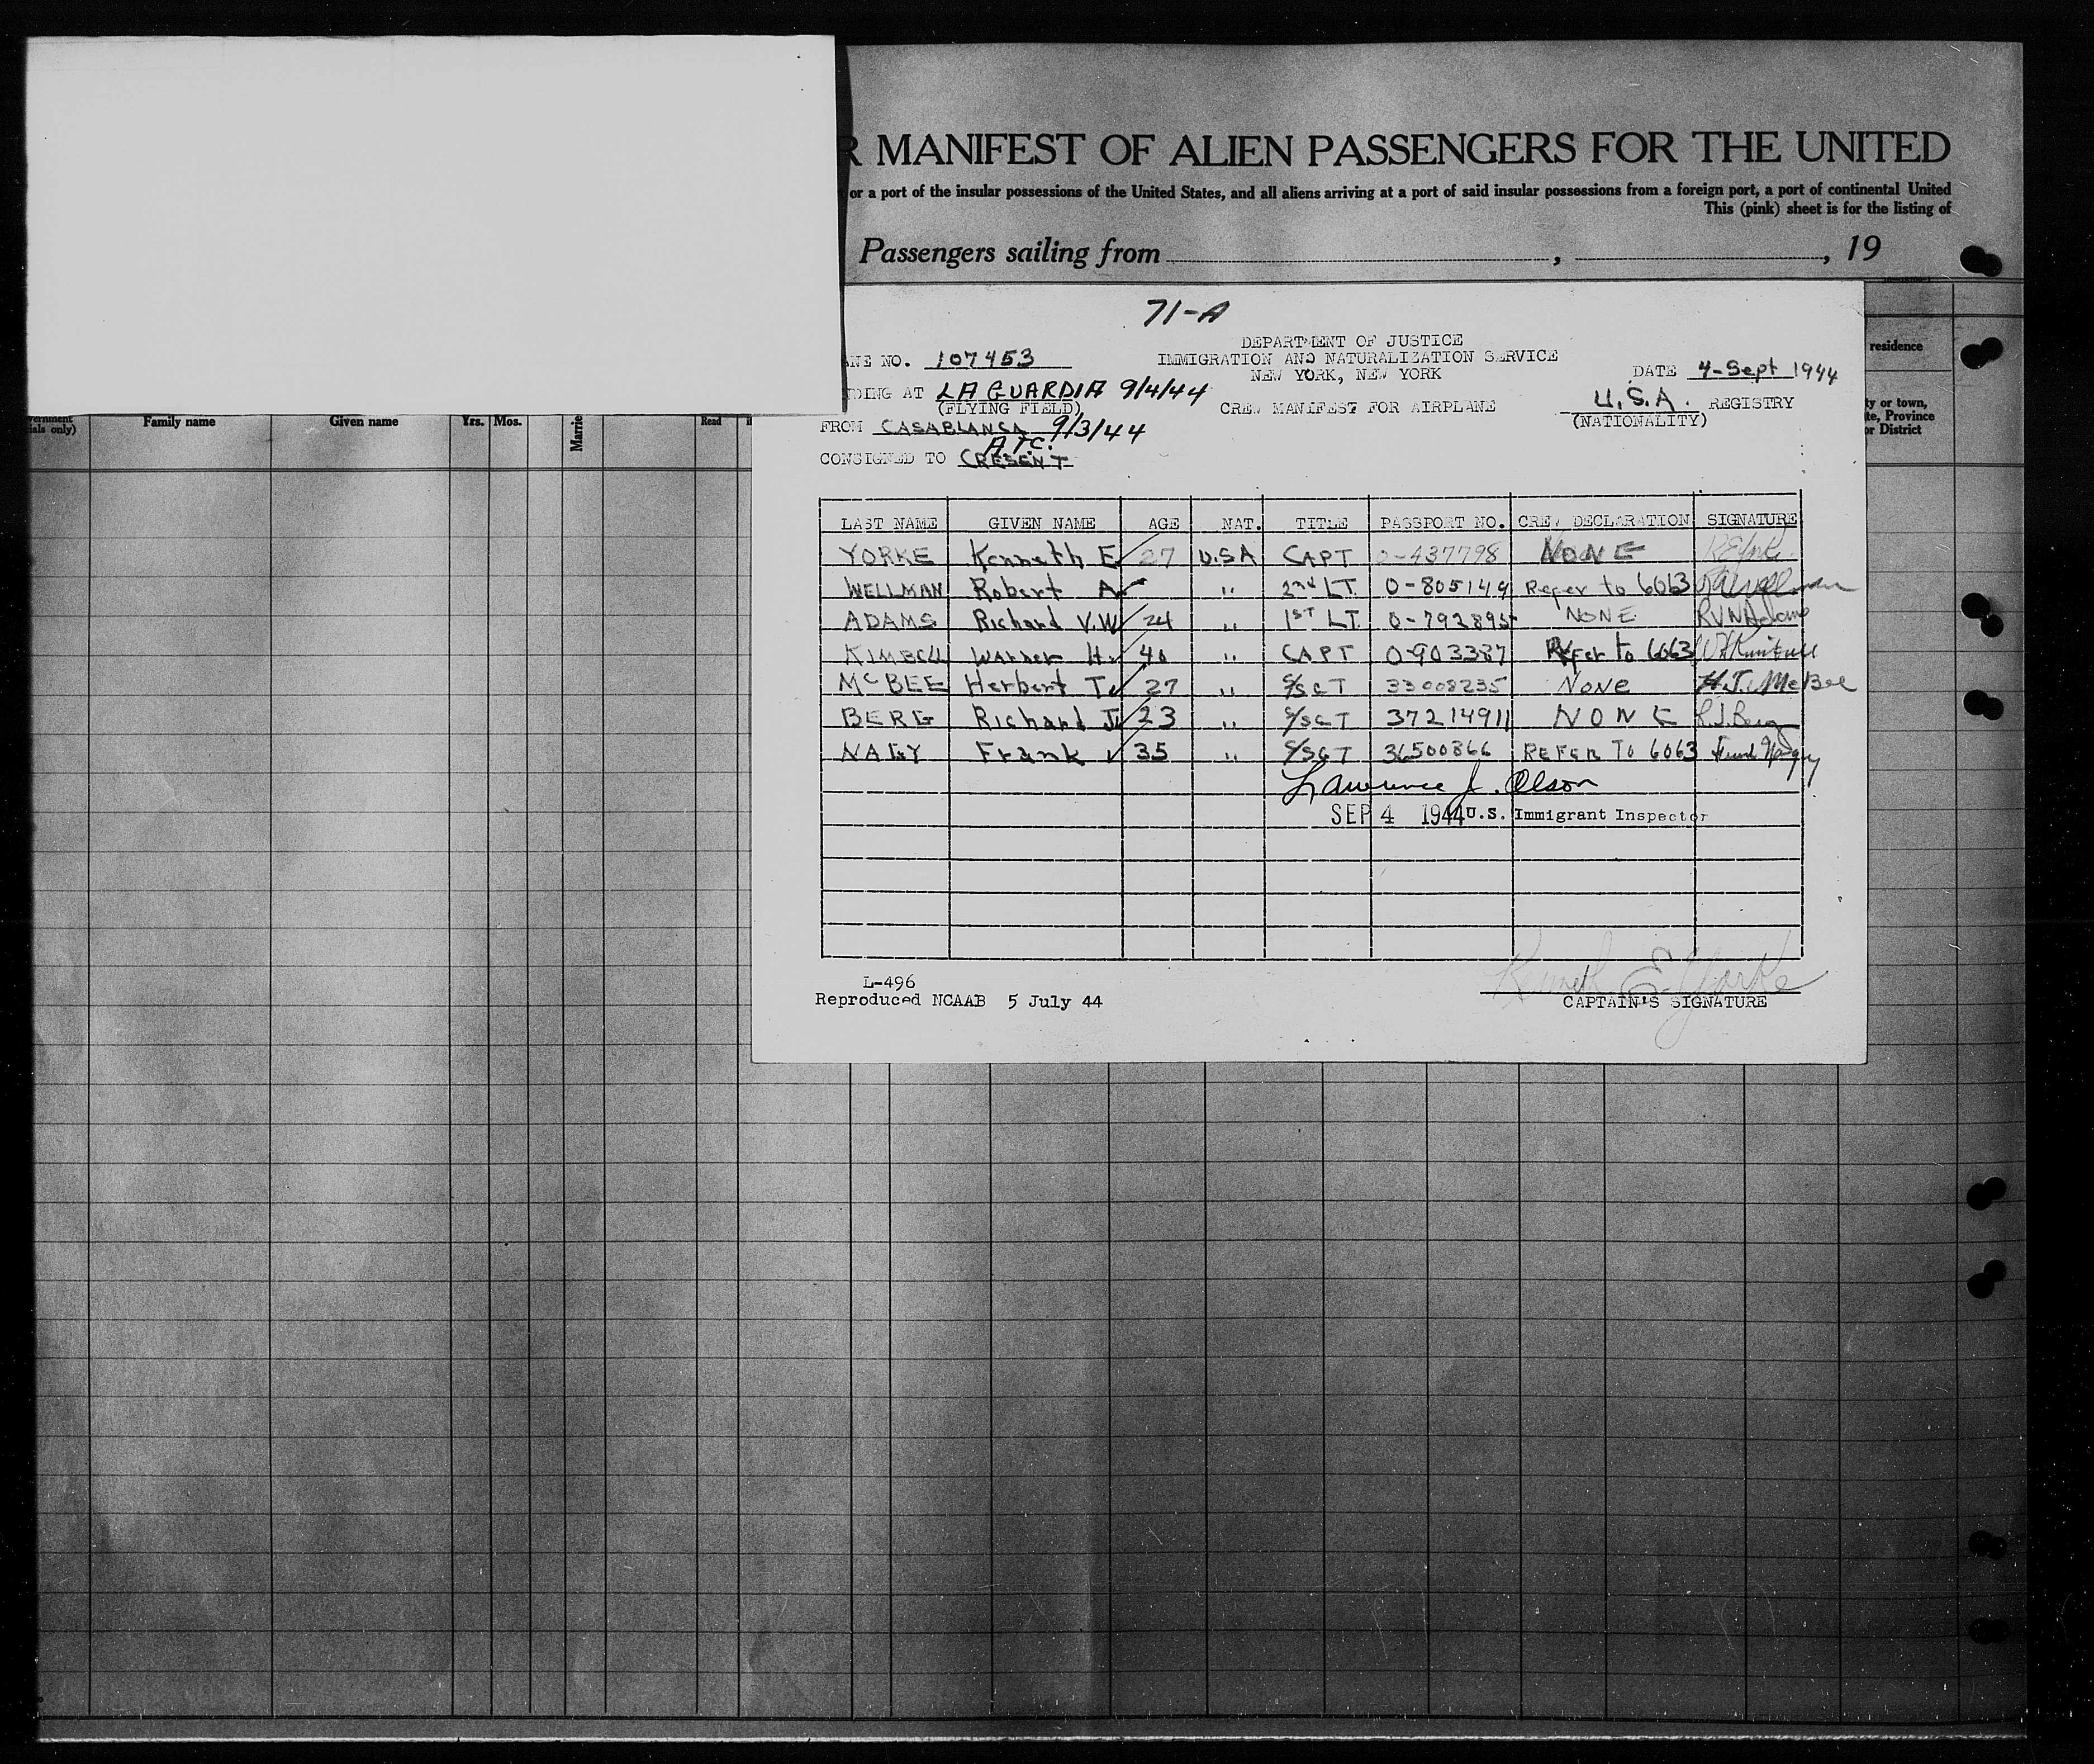 R MANIFEST OF ALIEN PASSENGERS FOR THE UNITED
or a port of the insular possessions of the United States, and all aliens arriving at a port of said insular possessions from a foreign port, a port of continental United
This (pink) sheet is for the listing of
Passengers sailing from , , 19
71-A
DEPARTMENT OF JUSTICE
NE NO. 107453 IMMIGRATION AND NATURALIZATION SERVICE
NEW YORK, NEW YORK DATE 4-Sept 1944
DING AT LA GUARDIA 9/4/44 U.S.A. REGISTRY
(FLYING FIELD) CREW MANIFEST FOR AIRPLANE (NATIONALITY)
FROM CASABLANCA 9/3/44
A.T.C.
CONSIGNED TO CRESENT
residence
ty or town,
te, Province
or District
ernment
ials only) Family name Given name Yrs. Mos. Marrie Read
LAST NAME GIVEN NAME AGE NAT. TITLE PASSPORT NO. CREW DECLARATION SIGNATURE
YORKE Kenneth E 27 U.S.A CAPT 0-437798 NONE
WELLMAN Robert A " 2nd LT. 0-805149 Refer to 6063 RAWellman
ADAMS Richard V.W 24 " 1ST LT. 0-792895 NONE RVWAdams
KIMBELL Warner H. 40 " CAPT 0-903387 Refer to 6063
McBEE Herbert T 27 " S/SGT 33008235 NONE H.T. McBee
BERG Richard J 23 " S/SGT 37214911 NONE R.J. Berg
NAGY Frank 35 " S/SGT 36500866 REFER TO 6063 Frank Nagy
Lawrence J. Olson
SEP 4 1944 U.S. Immigrant Inspector
L-496
Reproduced NCAAB 5 July 44
Kenneth E. Yorke
CAPTAIN'S SIGNATURE